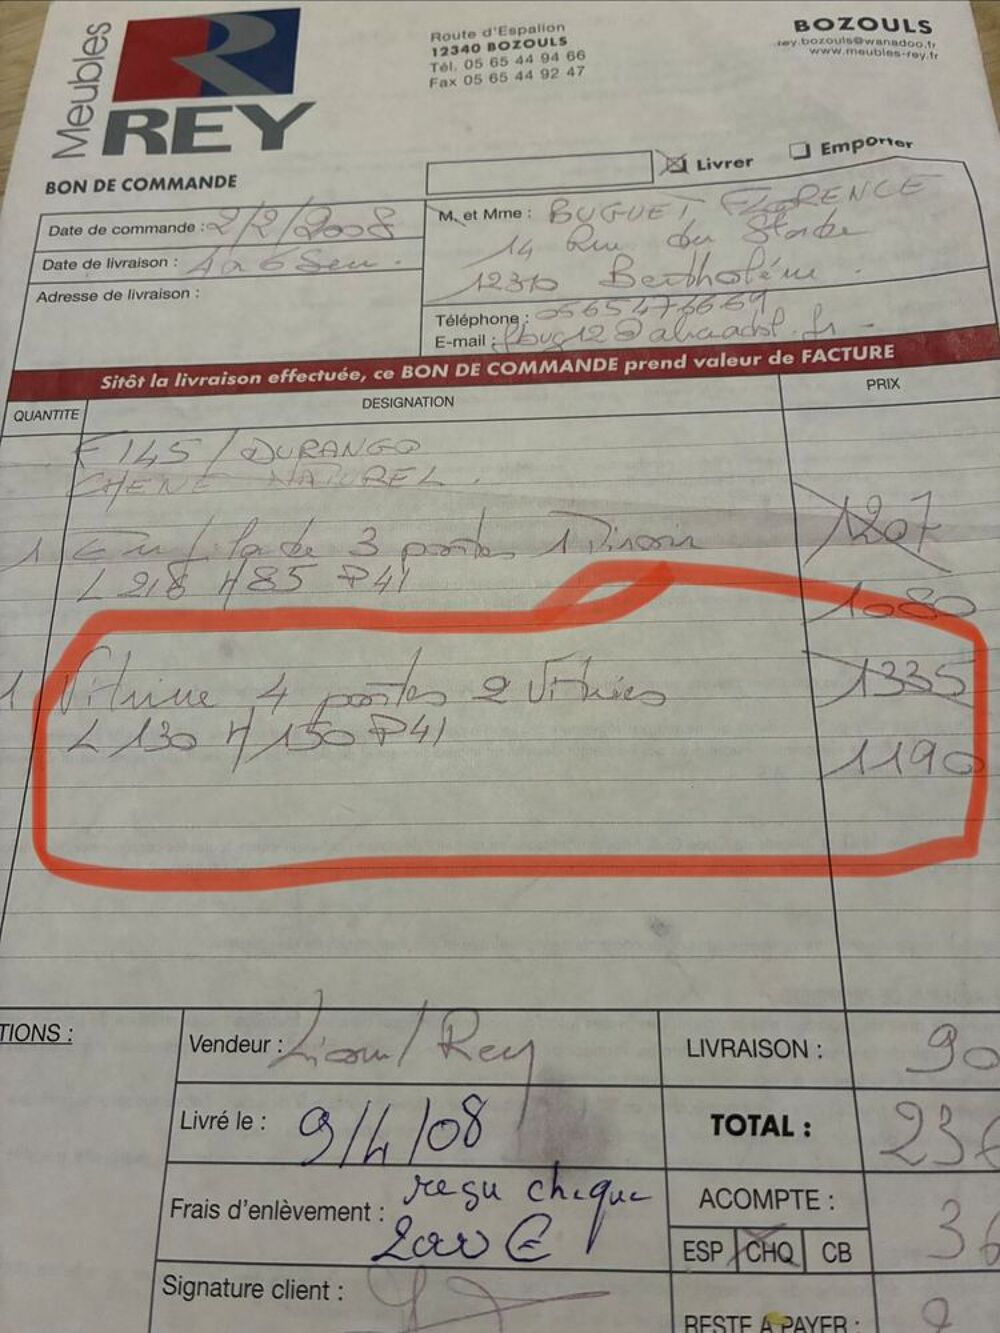 Meubles
REY
Route d'Espalion
12340 BOZOULS
Tél. 05 65 44 94 66
Fax 05 65 44 92 47
BOZOULS
rey.bozouls@wanadoo.fr
www.meubles-rey.fr
BON DE COMMANDE
Livrer
Emporter
Date de commande : 2/2/2008
Date de livraison : 4 a 6 Sem.
Adresse de livraison :
M. et Mme : BUGUET FLORENCE
14 Rue du Stade
12310 Bertholène.
Téléphone : 0565476669
E-mail :
Sitôt la livraison effectuée, ce BON DE COMMANDE prend valeur de FACTURE
QUANTITE DESIGNATION PRIX
F145 / DURANGO
CHENE NATUREL.
1 Enfilade 3 portes 1 Tiroir 1207
L 218 H85 P41 1080
1 Vitrine 4 portes 2 Vitrées 1335
L 130 H150 P41 1190
TIONS :
Vendeur : Lionel Rey
Livré le : 9/4/08
Frais d'enlèvement : reçu chèque
2000 €
Signature client :
LIVRAISON : 90
TOTAL : 236
ACOMPTE : 36
ESP CHQ CB
RESTE A PAYER :